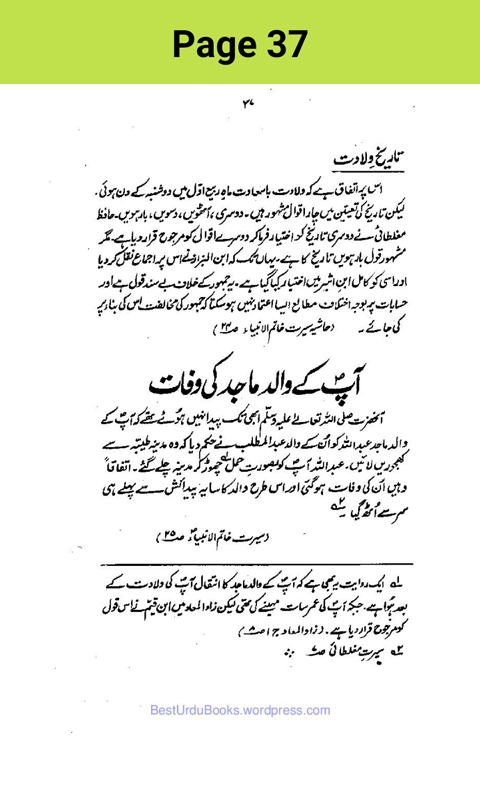 Page 37
۳۷
تاریخ ولادت
اس پر اتفاق ہے کہ ولادت باسعادت ماہ ربیع اوّل میں دوشنبہ کے دن ہوئی.
لیکن تاریخ کی تعیین میں چار اقوال مشہور ہیں۔ دوسری، آٹھویں، دسویں، بارہویں. حافظ
مغلطائی نے دوسری تاریخ کو اختیار فرما کر دوسرے اقوال کو مرجوح قرار دیا ہے. مگر
مشہور قول بارہویں تاریخ کا ہے۔ یہاں تک کہ ابن البزار نے اس پر اجماع نقل کر دیا
اور اسی کو کامل ابن اثیر میں اختیار کیا گیا ہے۔ یہ جمہور کے خلاف بے سند قول ہے اور
حسابات پر بوجہ اختلاف مطالع ایسا اعتماد نہیں ہو سکتا کہ جمہور کی مخالفت اس کی بناء پر
کی جائے۔ (حاشیہ سیرت خاتم الانبیاء ص۲۴)
آپؐ کے والد ماجد کی وفات
آنحضرت صلی اللہ تعالےٰ علیہ وسلّم ابھی تک پیدا نہیں ہوئے تھے کہ آپؐ کے
والد ماجد عبداللہ کو اُن کے والد عبدالمطلب نے حکم دیا کہ وہ مدینہ طیّبہ سے
کھجوریں لائیں۔ عبداللہ آپؐ کو بصورتِ حمل چھوڑ کر مدینہ چلے گئے۔ اتفاقاً
وہیں اُن کی وفات ہو گئی اور اس طرح والد کا سایہ پیدائش سے پہلے ہی
سر سے اُٹھ گیا ۲ے
(سیرت خاتم الانبیاءؐ ص۲۵)
۱ے ایک روایت یہ بھی ہے کہ آپؐ کے والد ماجد کا انتقال آپؐ کی ولادت کے
بعد ہوا ہے. جبکہ آپؐ کی عمر سات مہینے کی تھی لیکن زاد المعاد میں ابن قیمؒ نے اس قول
کو مرجوح قرار دیا ہے۔ (زاد المعاد ج۱ ص۸)
۲ے سیرتِ مغلطائی ص۷ ؞
BestUrduBooks.wordpress.com